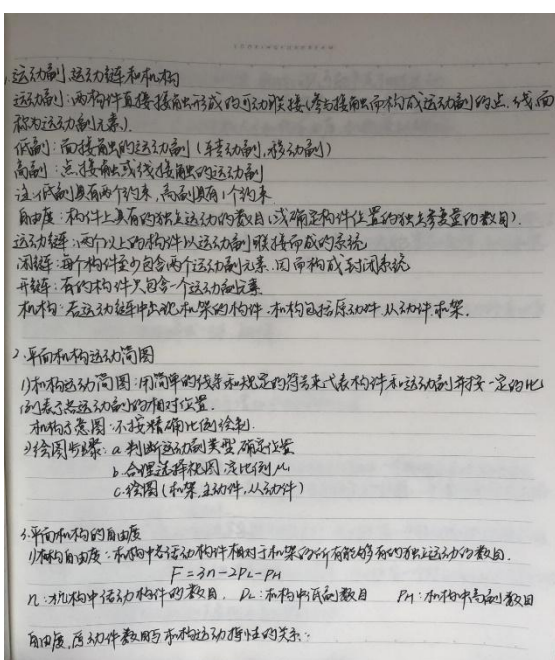 1.运动副、运动链和机构
运动副:两构件直接接触形成的可动联接(参与接触而构成运动副的点、线、面
称为运动副元素).
低副:面接触的运动副(转动副,移动副)
高副:点接触或线接触的运动副
注:低副具有两个约束,高副具有1个约束
自由度:构件上具有的独立运动的数目(或确定构件位置的独立参变量的数目).
运动链:两个以上的构件以运动副联接而成的系统
闭链:每个构件至少包含两个运动副元素.因而构成封闭系统
开链:有的构件只包含一个运动副元素
机构:若运动链中出现机架的构件.机构包括原动件.从动件.机架.
2.平面机构运动简图
1)机构运动简图:用简单的线条和规定的符号来代表构件和运动副并按一定的比
例表示各运动副的相对位置.
机构示意图:不按精确比例绘制.
2)绘图步骤:a.判断运动副类型.确定位置
b.合理选择视图.定比例μ
c.绘图(机架,主动件,从动件)
3.平面机构的自由度
1)机构自由度:机构中各活动构件相对于机架的所有能够有的独立运动的数目.
F=3n-2PL-PH
n:机构中活动构件的数目. PL:机构中低副数目 PH:机构中高副数目
自由度,原动件数目与机构运动特性的关系: